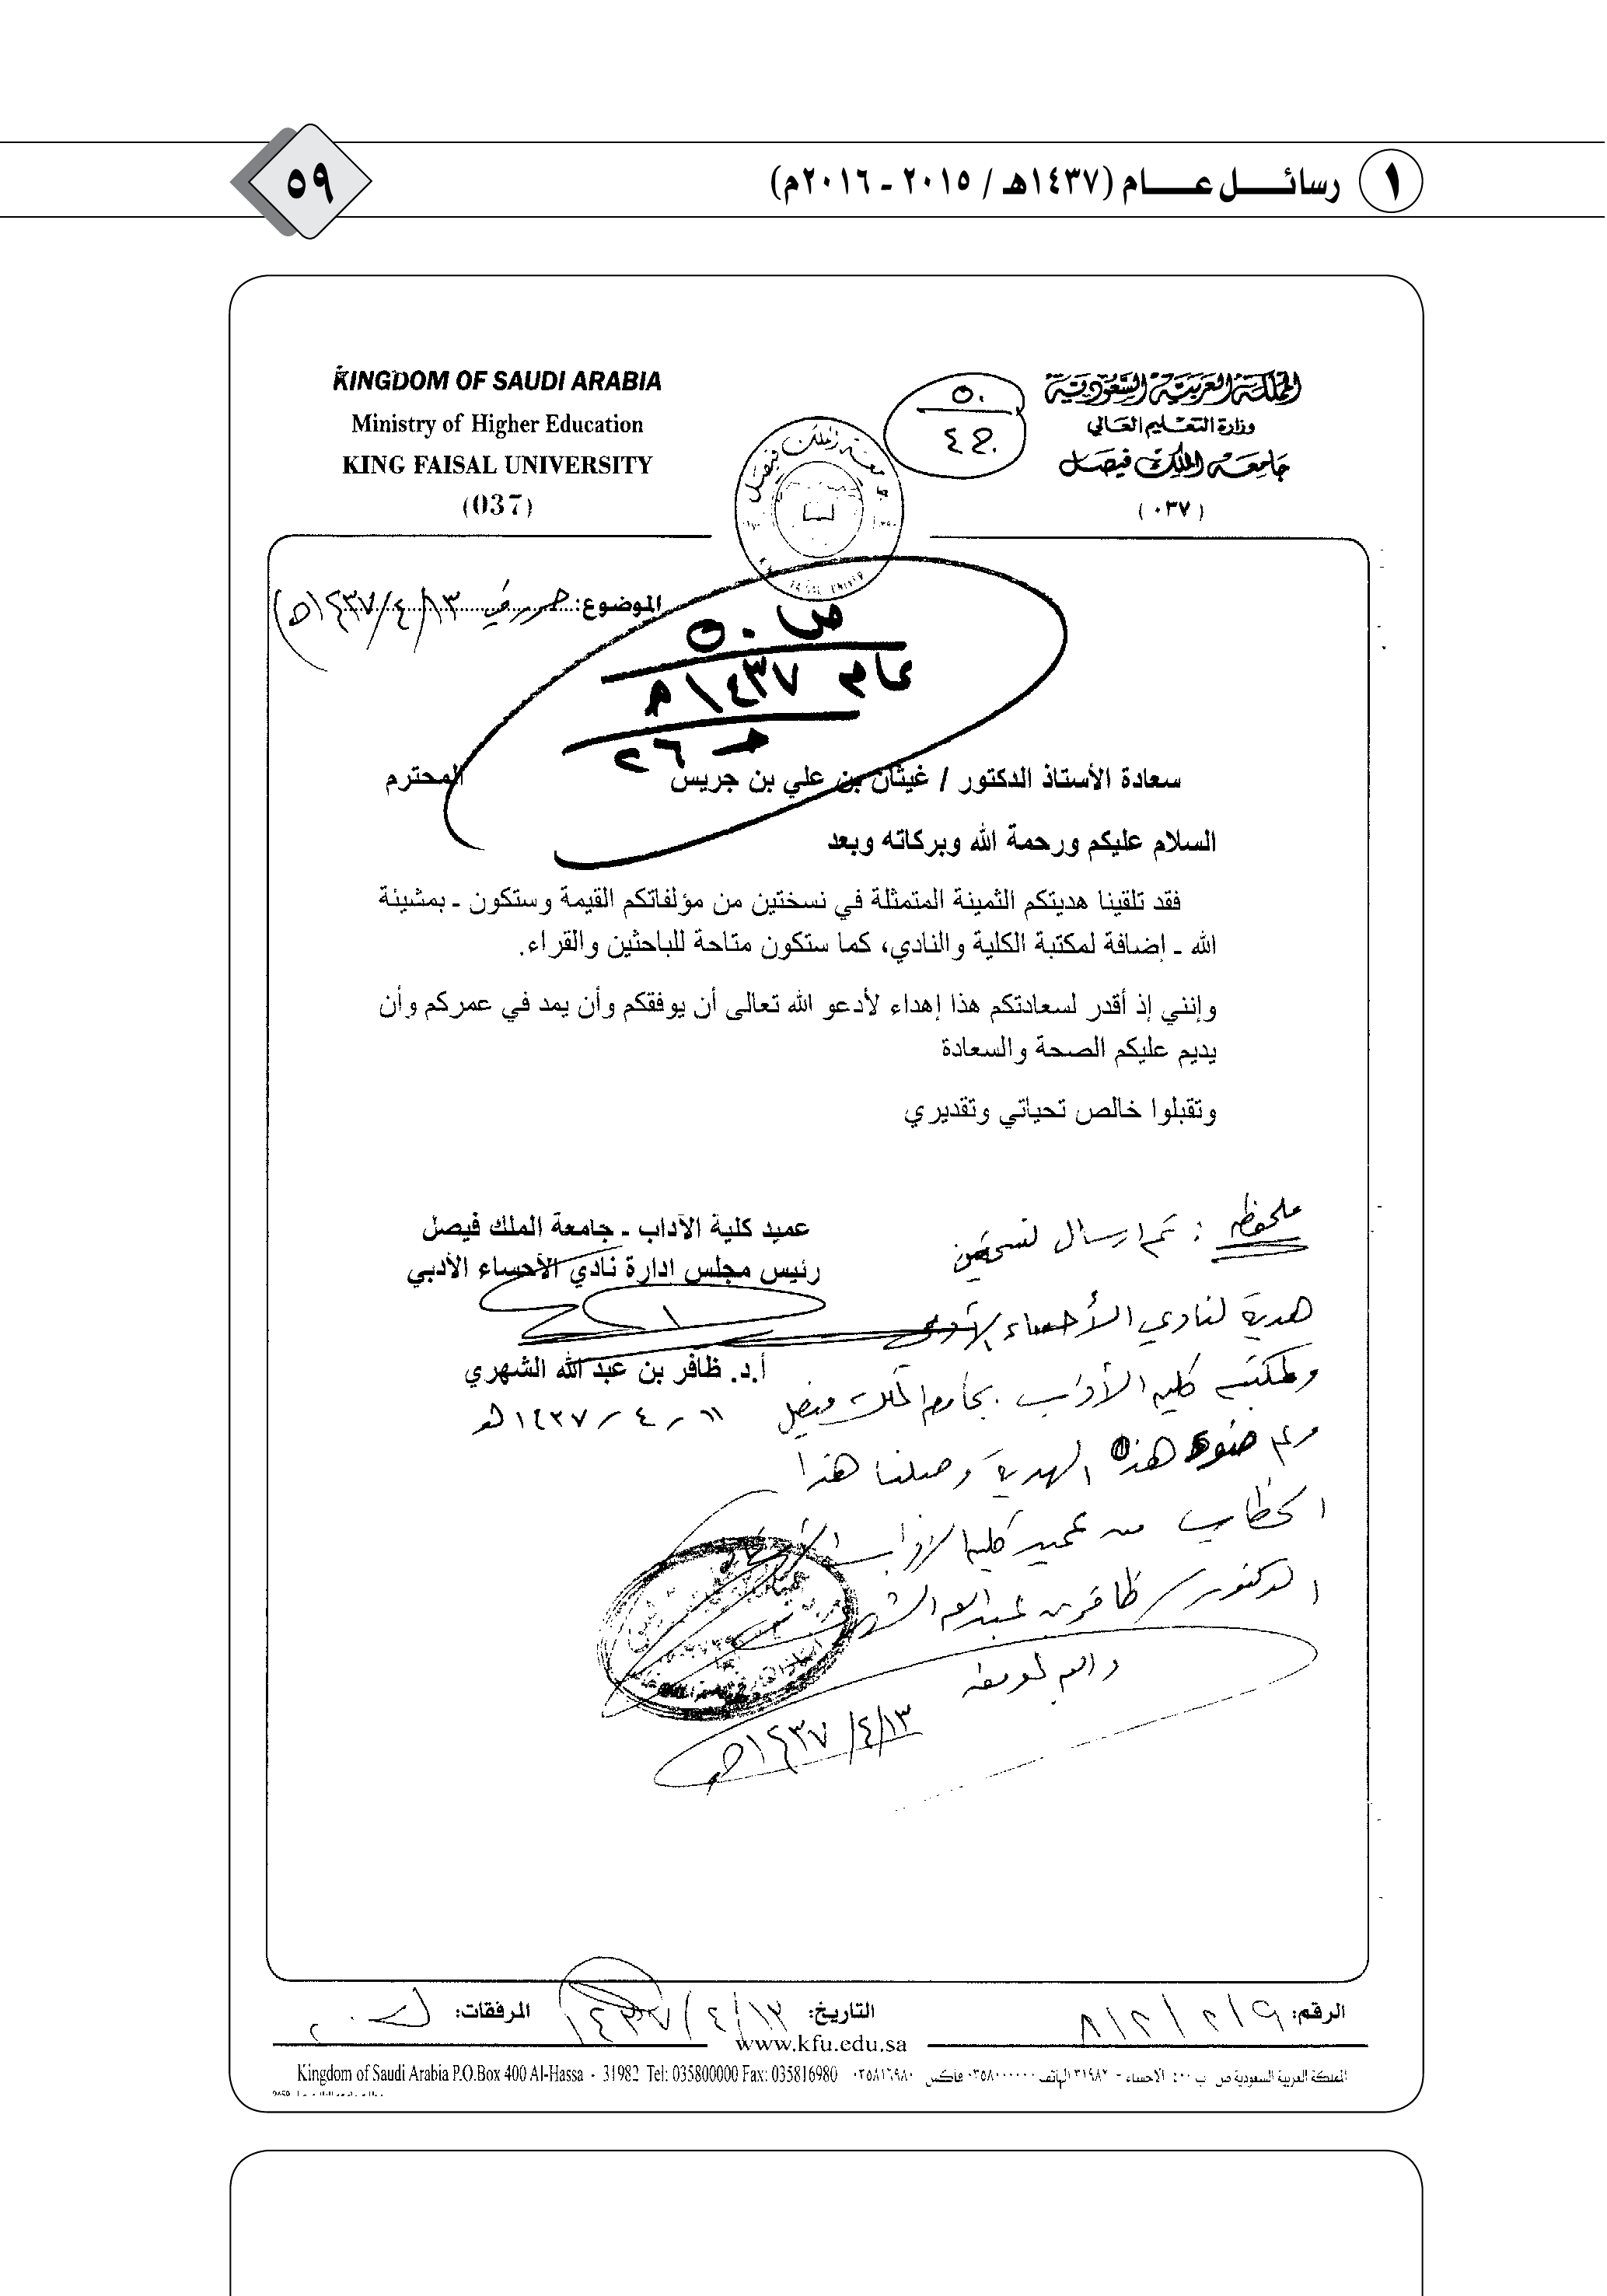 ١ رسائل عام (١٤٣٧هـ / ٢٠١٥ - ٢٠١٦م)
٥٩
KINGDOM OF SAUDI ARABIA
Ministry of Higher Education
KING FAISAL UNIVERSITY
(037)
المملكة العربية السعودية
وزارة التعليم العالي
جامعة الملك فيصل
(٠٣٧)
٥٠
الموضوع:
ص ٥٠
عام ١٤٣٧هـ
سعادة الأستاذ الدكتور / غيثان بن علي بن جريس المحترم
السلام عليكم ورحمة الله وبركاته وبعد
فقد تلقينا هديتكم الثمينة المتمثلة في نسختين من مؤلفاتكم القيمة وستكون ـ بمشيئة
الله ـ إضافة لمكتبة الكلية والنادي، كما ستكون متاحة للباحثين والقراء.
وإنني إذ أقدر لسعادتكم هذا إهداء لأدعو الله تعالى أن يوفقكم وأن يمد في عمركم وأن
يديم عليكم الصحة والسعادة
وتقبلوا خالص تحياتي وتقديري
عميد كلية الآداب ـ جامعة الملك فيصل
رئيس مجلس ادارة نادي الأحساء الأدبي
أ.د. ظافر بن عبد الله الشهري
١٤٣٧هـ
ملحوظه : تم ارسال نسختين
هدية لنادي الأحساء الأدبي
ولمكتبه كليه الأداب بجامعه الملك فيصل
هذه الهدية وصلنا هذا
الخطاب من عميد كلية الآداب
الدكتور ظافر بن عبدالله الشهري
والله الموفق
١٣/٤/١٤٣٧هـ
الرقم:
التاريخ: ١٣/٤/١٤٣٧
المرفقات:
www.kfu.edu.sa
Kingdom of Saudi Arabia P.O.Box 400 Al-Hassa - 31982 Tel: 035800000 Fax: 035816980
المملكة العربية السعودية ص ب ٤٠٠ الاحساء - ٣١٩٨٢ الهاتف ٠٣٥٨٠٠٠٠٠٠ فاكس ٠٣٥٨١٦٩٨٠